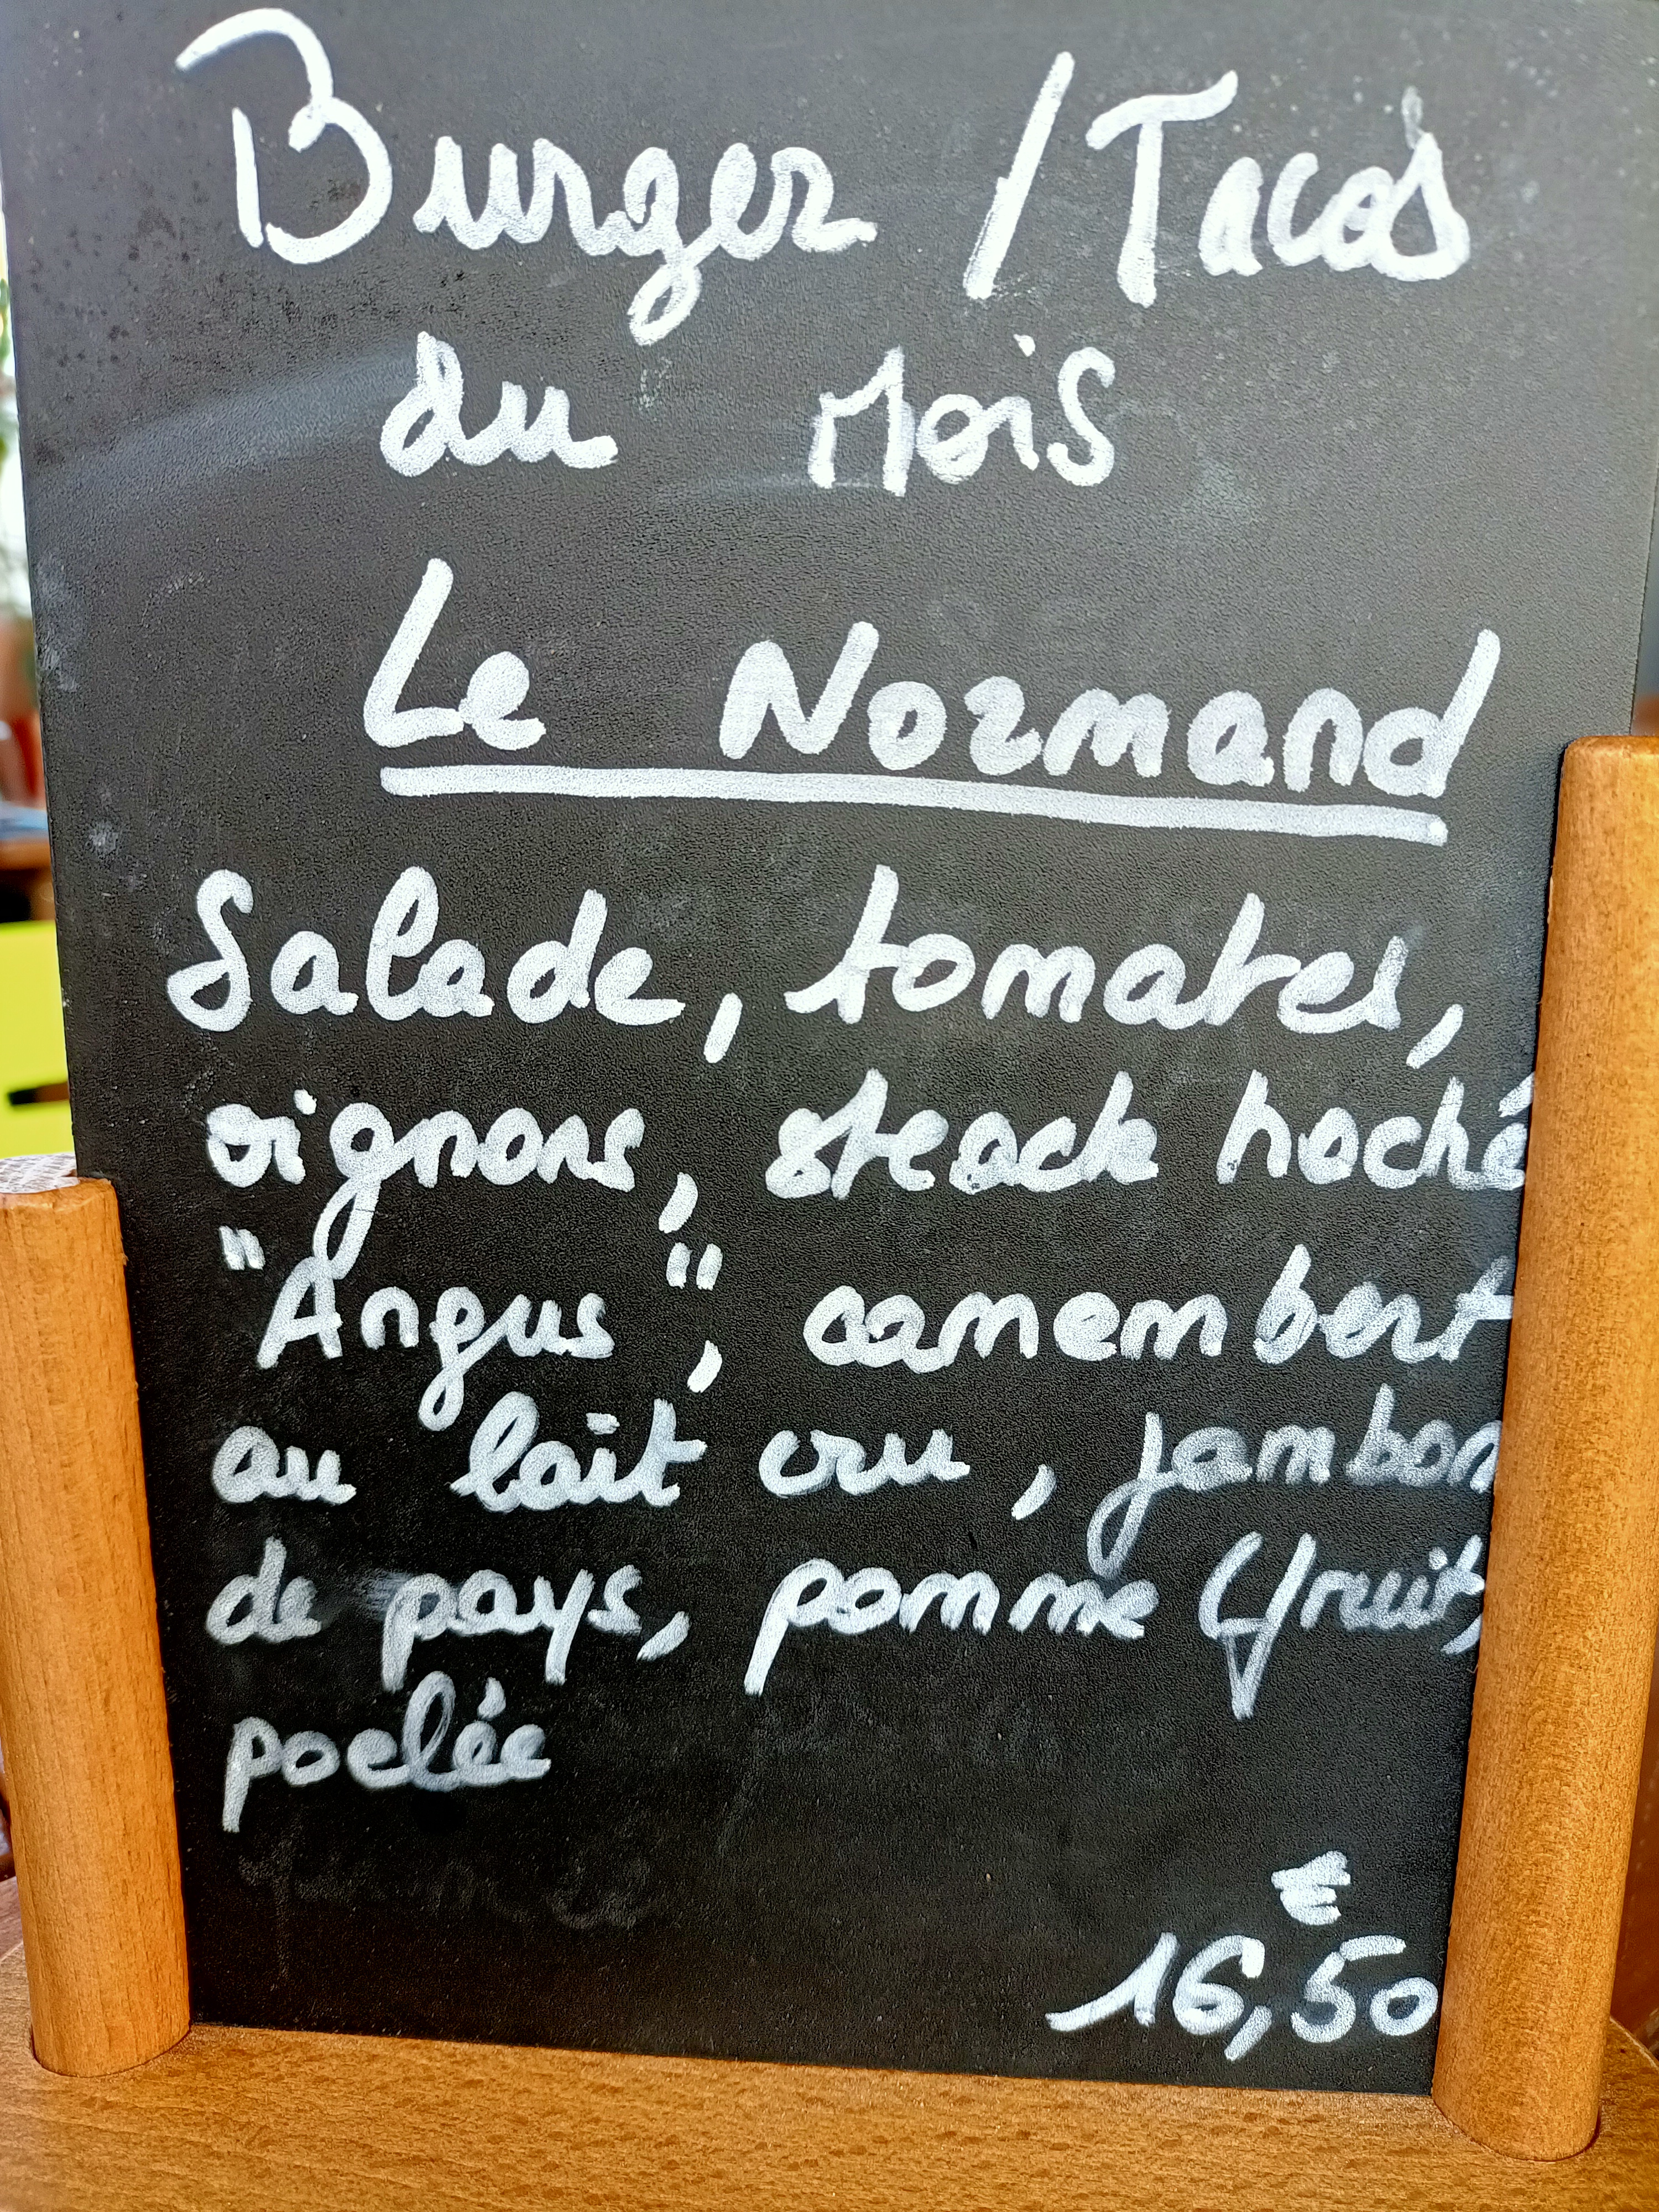 Burger / Tacos
du Mois
Le Normand
Salade, tomates,
oignons, steack haché
"Angus", camembert
au lait cru, jambon
de pays, pomme (fruit)
poelée
€
16,50